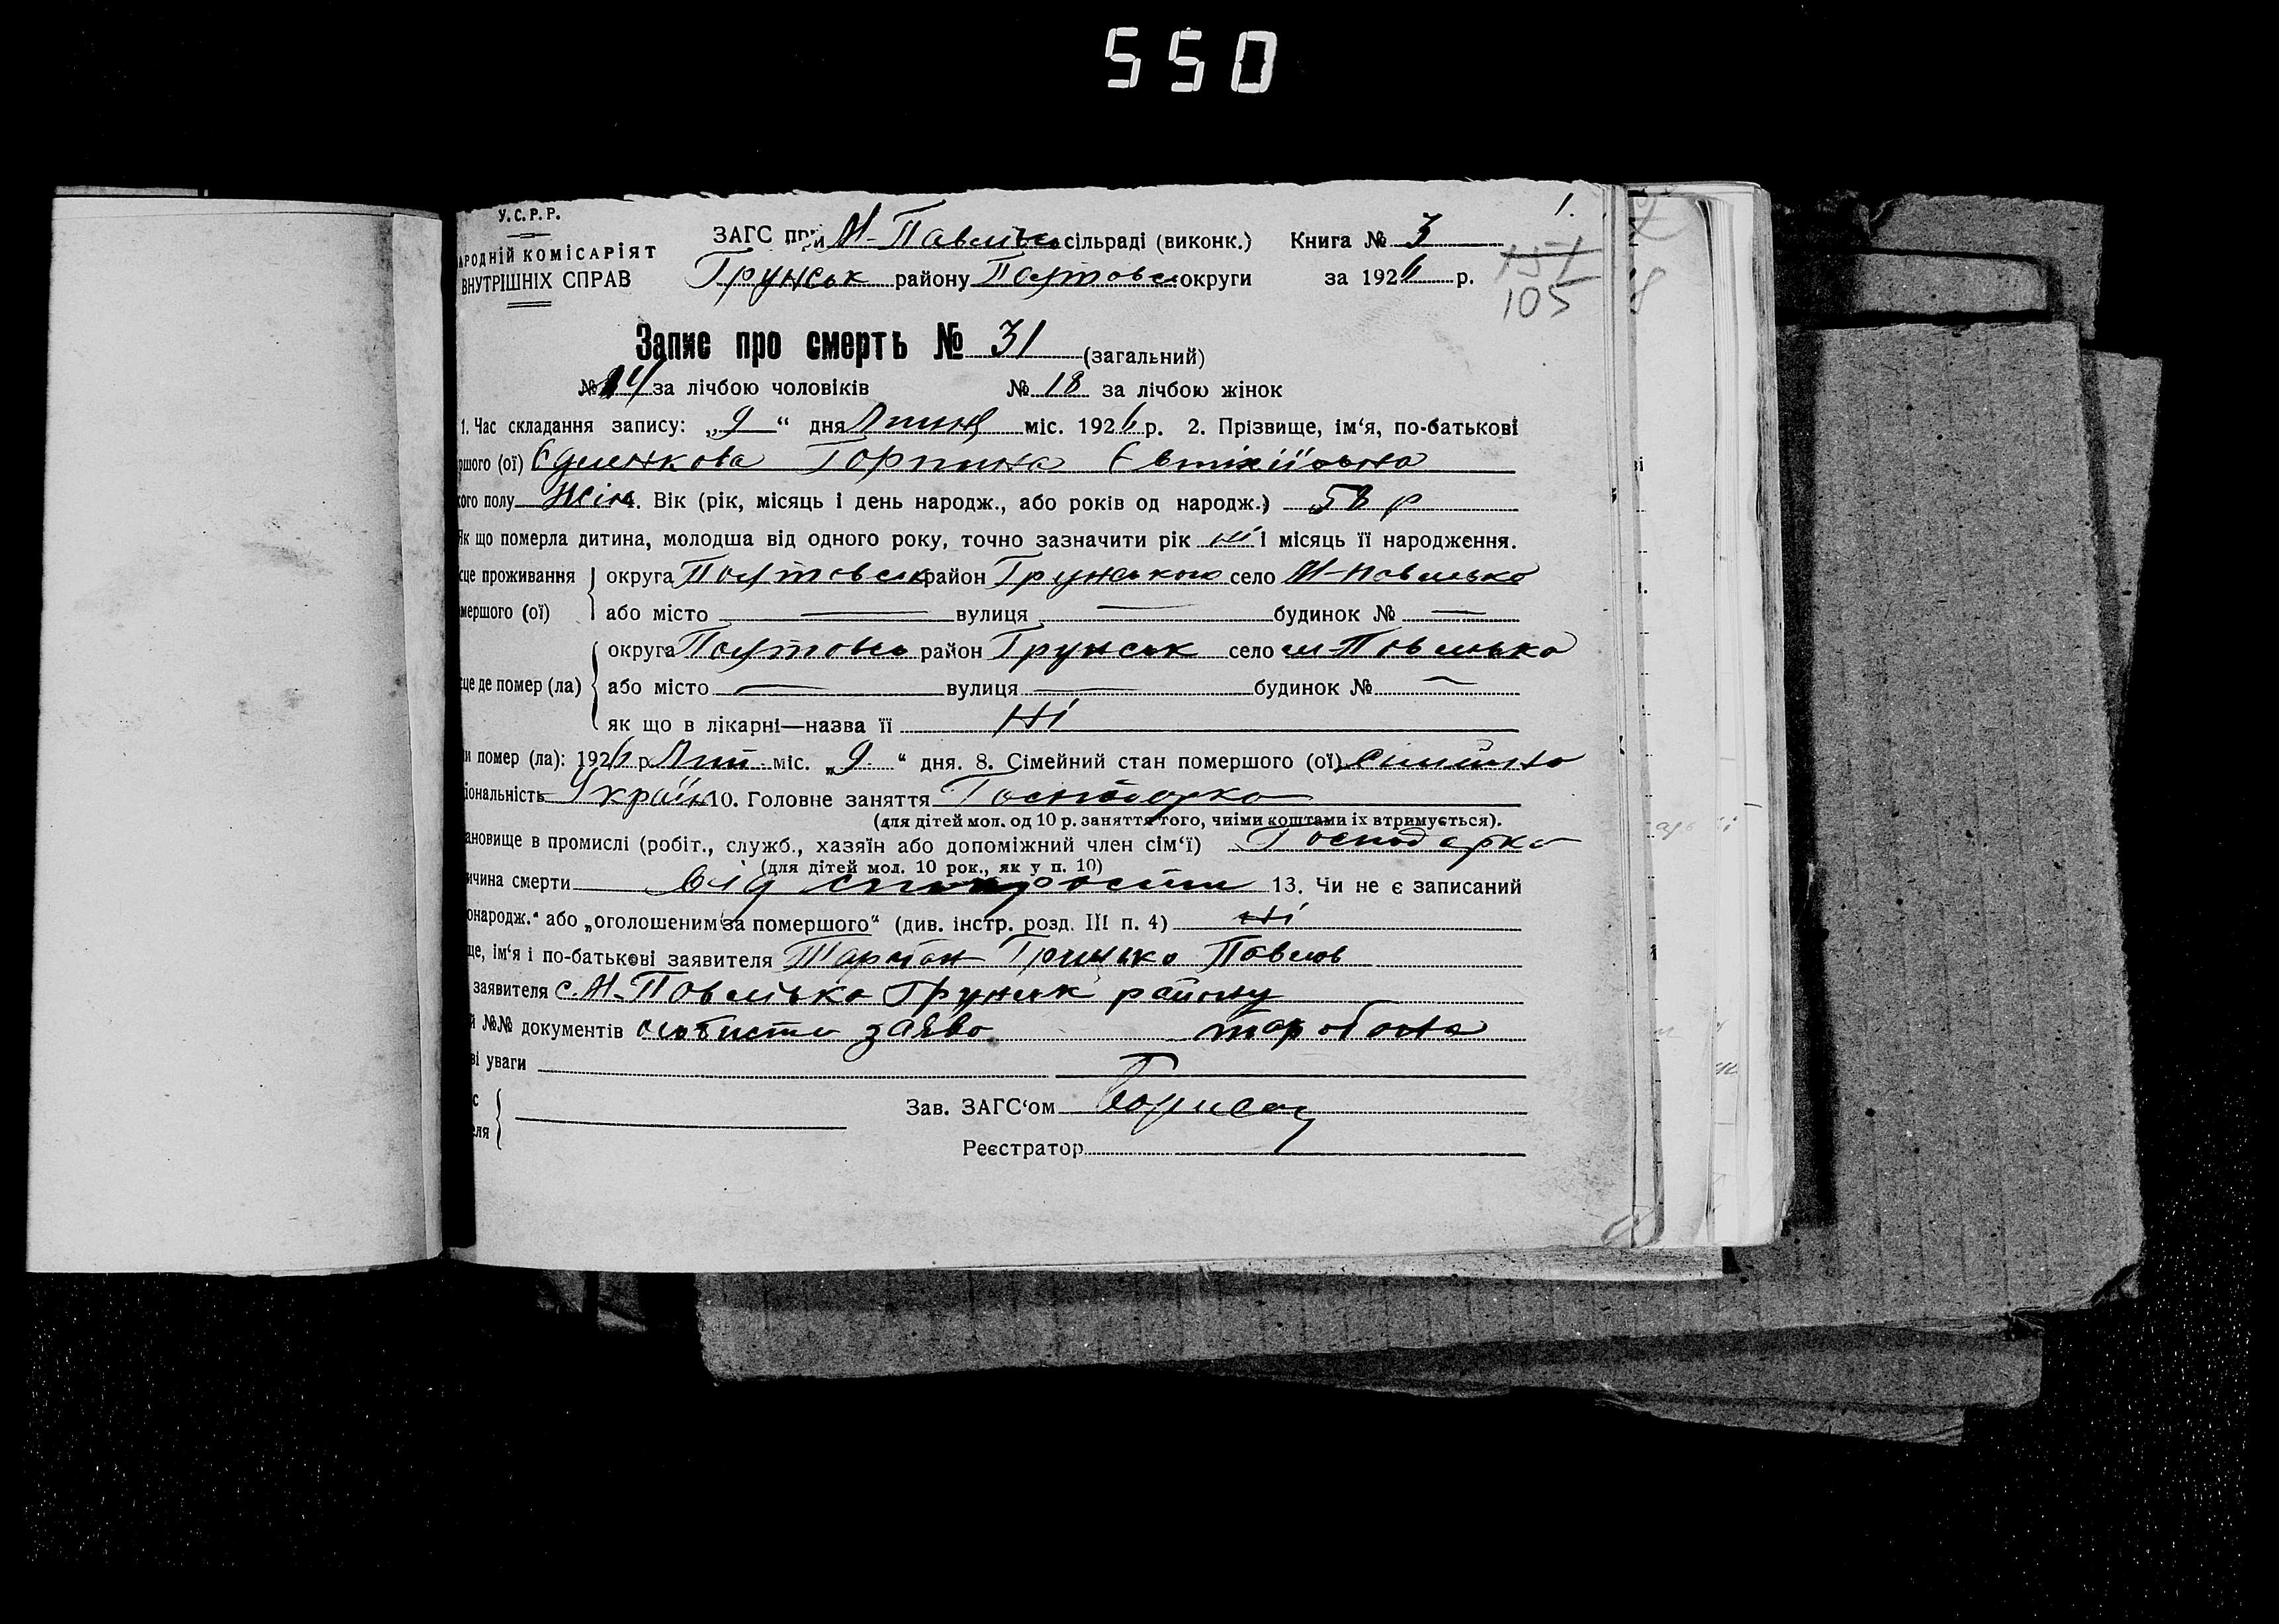 550
1.
У.С.Р.Р.
АРОДНІЙ КОМІСАРІЯТ
ВНУТРІШНІХ СПРАВ
ЗАГС при М-Павлівка сільраді (виконк.) Книга № 3
Грунськ району Полтовсь округи за 1926 р.
151
105
Запис про смерть № 31 (загальний)
№ 14 за лічбою чоловіків № 18 за лічбою жінок
1. Час складання запису: „9“ дня Липня міс. 1926 р. 2. Прізвище, ім‘я, по-батькові
ршого (ої) Горпина
кого полу жін 4. Вік (рік, місяць і день народж., або років од народж.) 58 р
Як що померла дитина, молодша від одного року, точно зазначити рік ні і місяць її народження.
сце проживання округа Полтовськ район Грунського село М-Повлівка
мершого (ої) або місто — вулиця — будинок № —
округа Полтовсь район Грунськ село М-Повлівка
сце де помер (ла) або місто — вулиця — будинок № —
як що в лікарні—назва її Ні
и помер (ла): 1926 р. Лип міс. „9“ дня. 8. Сімейний стан помершого (ої) сімейна
іональність Україн 10. Головне заняття Господарка
(для дітей мол. од 10 р. заняття того, чиїми коштами їх втримується).
ановище в промислі (робіт., служб., хазяїн або допоміжний член сім‘ї) Господарка
(для дітей мол. 10 рок., як у п. 10)
ичина смерти від старости 13. Чи не є записаний
онародж.“ або „оголошеним за помершого“ (див. інстр. розд. III п. 4) Ні
ще, ім‘я і по-батькові заявителя Грицько Повлов
заявителя с. М-Повлівка Грунськ району
й №№ документів особиста заява
ві уваги
с
еля
Зав. ЗАГС‘ом
Реєстратор